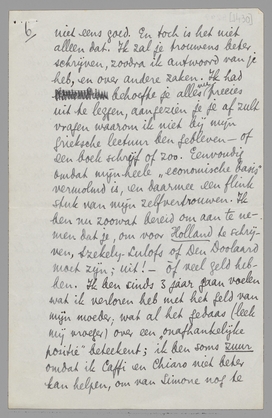 6.
niet eens goed. En toch is het niet
alleen dat. Ik zal je trouwens beter
schrijven, zoodra ik antwoord van je
heb, en over andere zaken. Ik had
behoefte je alles precies
uit te leggen, aangezien je je af zult
vragen waarom ik niet bij mijn
grieksche lectuur ben gebleven – of
een boek schrijf of zoo. Eenvoudig
omdat mijn heele „economische basis"
vermolmd is, en daarmee een flink
stuk van mijn zelfvertrouwen. Ik
ben nu zoowat bereid om aan te ne-
men dat je, om voor Holland te schrij-
ven, Szekely-Lulofs of Den Doolaard
moet zijn; uit! – òf veel geld heb-
ben. Ik ben sinds 3 jaar gaan voelen
wat ik verloren heb met het geld van
mijn moeder, wat al het gedaas (leek
mij vroeger) over een onafhankelijke
positie" beteekent; ik ben soms zuur
omdat ik Caffi en Chiaro niet beter
kan helpen, om van Simone nog te